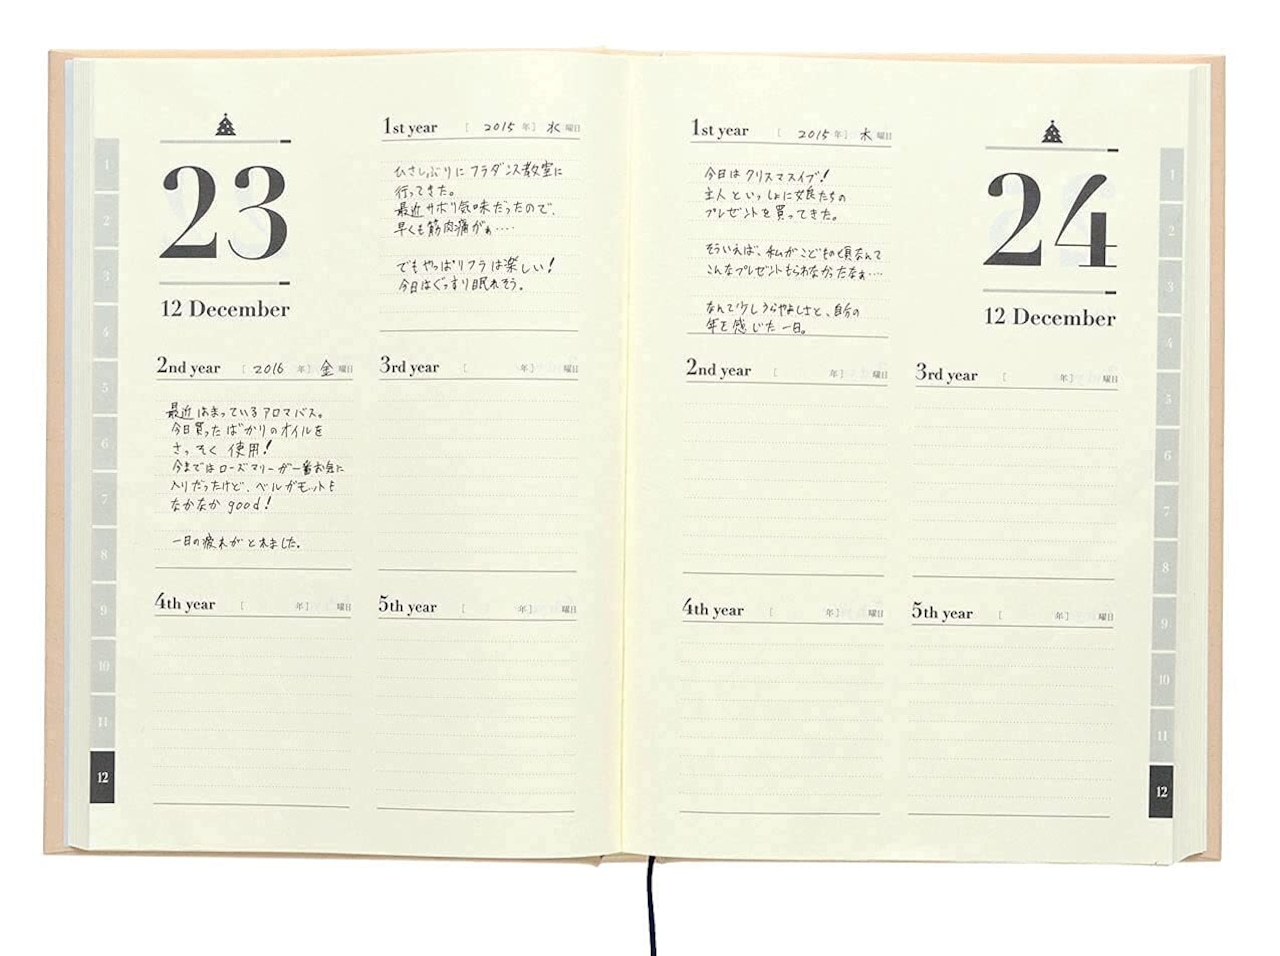 23
12 December
1st year [ 2015 年] 水 曜日
ひさしぶりにフラダンス教室に
行ってきた。
最近サボリ気味だったので、
早くも筋肉痛がぁ‥‥
でもやっぱりフラは楽しい!
今日はぐっすり眠れそう。
2nd year [ 2016 年] 金 曜日
最近はまっているアロマバス。
今日買ったばかりのオイルを
さっそく使用!
今まではローズマリーが一番お気に
入りだったけど、ベルガモットも
なかなか good!
一日の疲れがとれました。
3rd year [ 年] 曜日
4th year [ 年] 曜日
5th year [ 年] 曜日
1
2
3
4
5
6
7
8
9
10
11
12
1st year [ 2015 年] 木 曜日
今日はクリスマスイブ!
主人といっしょに娘たちの
プレゼントを買ってきた。
そういえば、私がこどもの頃なんて
こんなプレゼントもられなかったなぁ‥‥
なんて少しうらやましさと、自分の
年を感じた一日。
24
12 December
2nd year [ 年] 曜日
3rd year [ 年] 曜日
4th year [ 年] 曜日
5th year [ 年] 曜日
1
2
3
4
5
6
7
8
9
10
11
12